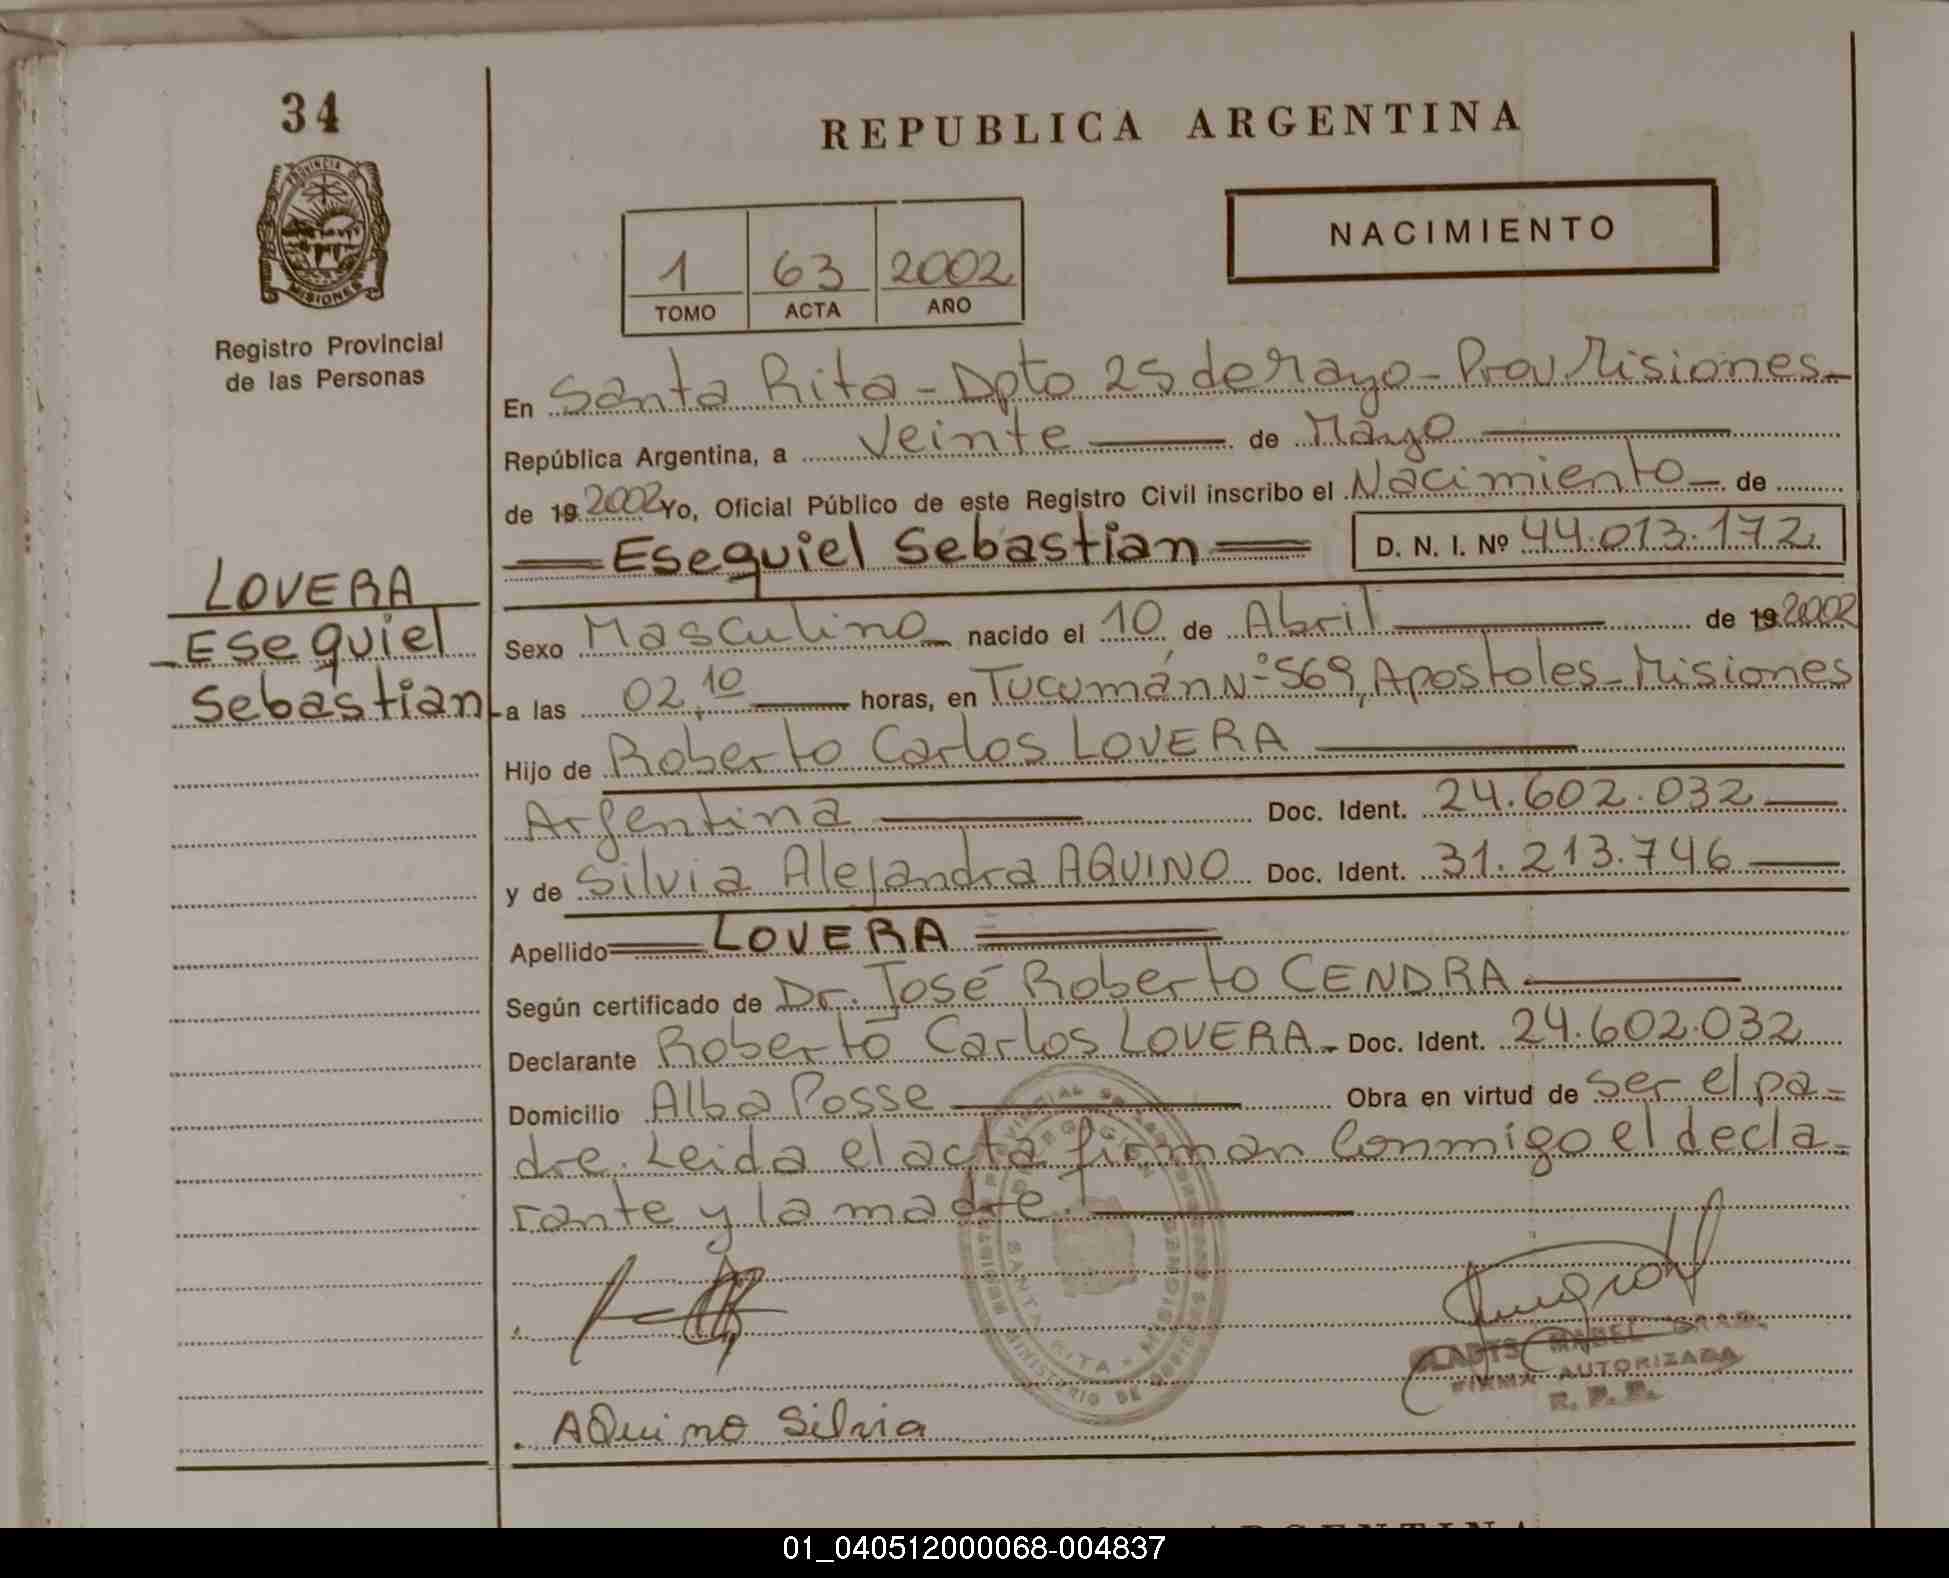 34
REPUBLICA ARGENTINA
PROVINCIA DE
MISIONES
Registro Provincial
de las Personas
1 63 2002
TOMO ACTA AÑO
NACIMIENTO
En Santa Rita - Dpto 25 de Mayo - Prov Misiones -
República Argentina, a Veinte de Mayo
de 19 2002 Yo, Oficial Público de este Registro Civil inscribo el Nacimiento - de
Esequiel Sebastian D. N. I. Nº 44.013.172
LOVERA
Esequiel
Sebastian
Sexo Masculino nacido el 10 de Abril de 19 2002
a las 02,10 horas, en Tucumán Nº 569, Apostoles - Misiones
Hijo de Roberto Carlos LOVERA
Argentina Doc. Ident. 24.602.032
y de Silvia Alejandra AQUINO Doc. Ident. 31.213.746
Apellido LOVERA
Según certificado de Dr. José Roberto CENDRA
Declarante Roberto Carlos LOVERA - Doc. Ident. 24.602.032
Domicilio Alba Posse Obra en virtud de ser el pa=
dre. Leida el acta firman conmigo el decla=
rante y la madre.
SANTA RITA - MISIONES
GLADYS MABEL
FIRMA AUTORIZADA
R. P. P.
Aquino Silvia
01_040512000068-004837